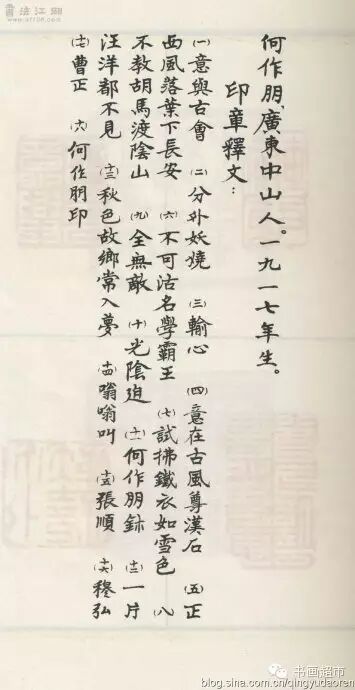 何作朋、廣東中山人。一九一七年生。
印章釋文：
(一)意與古會 (二)分外妖嬈 (三)輸心 (四)意在古風尊漢石 (五)正
西風落葉下長安 (六)不可沽名學霸王 (七)試拂鐵衣如雪色 (八)
不教胡馬渡陰山 (九)全無敵 (十)光陰迫 (十一)何作朋鉥 (十二)一片
汪洋都不見 (十三)秋色故鄉常入夢 (十四)嗡嗡叫 (十五)張順 (十六)穆弘
(十七)曹正 (十八)何作朋印
书画超市
blog.sina.com.cn/qingyudaoren